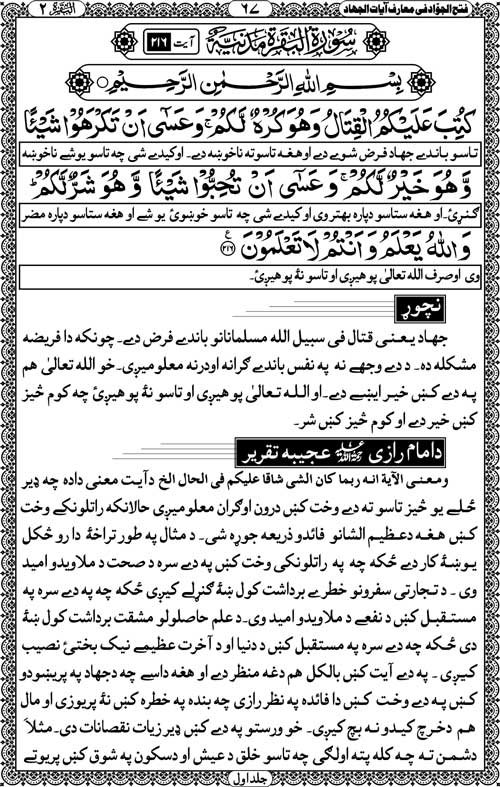 فتح الجوّاد فی معارف آیات الجهاد ٦٧ البقرة ٢
سورة البقرة مدنیة آیت ٢١٦
بِسْمِ اللهِ الرَّحْمٰنِ الرَّحِيْمِ
كُتِبَ عَلَيْكُمُ الْقِتَالُ وَهُوَ كُرْهٌ لَّكُمْ ۚ وَعَسٰٓى اَنْ تَكْرَهُوْا شَيْئًا
تاسو باندے جهاد فرض شوے دے او هغه تاسو ته ناخوښه دے۔ او کیدے شی چه تاسو یو شے ناخوښه
وَّهُوَ خَيْرٌ لَّكُمْ ۚ وَعَسٰٓى اَنْ تُحِبُّوْا شَيْئًا وَّهُوَ شَرٌّ لَّكُمْ ؕ
ګنړئ۔ او هغه ستاسو دپاره بهتر وی او کیدے شی چه تاسو خوښوئ یو شے او هغه ستاسو دپاره مضر
وَاللهُ يَعْلَمُ وَاَنْتُمْ لَا تَعْلَمُوْنَ ۝٢١٦
وی او صرف الله تعالیٰ پوهیږی او تاسو نهٔ پوهیږئ۔
نچوړ
جهاد یعنی قتال فی سبیل الله مسلمانانو باندے فرض دے۔ چونکه دا فریضه
مشکله ده۔ د دے وجهے نه په نفس باندے ګرانه او درنه معلومیږی۔ خو الله تعالیٰ هم
په دے کښ خیر ایښے دے۔ او الله تعالیٰ پوهیږی او تاسو نهٔ پوهیږئ چه کوم څیز
کښ خیر دے او کوم څیز کښ شر۔
د امام رازی رحمة الله علیه عجیبه تقریر
ومعنی الآیة انه ربما کان الشی شاقا علیکم فی الحال الخ د آیت معنی داده چه ډیر
ځلے یو څیز تاسو ته دے وخت کښ درون او ګران معلومیږی حالانکه راتلونکے وخت
کښ هغه د عظیم الشانو فائدو ذریعه جوړه شی۔ د مثال په طور تراخهٔ دارو څکل
یو ښهٔ کار دے ځکه چه په راتلونکی وخت کښ په دے سره د صحت د ملاویدو امید
وی۔ د تجارتی سفرونو خطرے برداشت کول ښهٔ ګنړلے کیږی ځکه چه په دے سره په
مستقبل کښ د نفعے د ملاویدو امید وی۔ د علم حاصلولو مشقت برداشت کول ښهٔ
دی ځکه چه دے سره په مستقبل کښ د دنیا او د آخرت عظیمے نیک بختئ نصیب
کیږی۔ په دے آیت کښ بالکل هم دغه منظر دے او هغه داسے چه د جهاد په پریښودو
کښ په دے وخت کښ دا فائده په نظر رازی چه بنده په خطره کښ نهٔ پریوزی او مال
هم د خرچ کیدو نه بچ کیږی۔ خو ورستو په دے کښ ډیر زیات نقصانات دی۔ مثلاً
دشمن ته چه کله پته اولګی چه تاسو خلق د عیش او د سکون په شوق کښ پریوتے
جلد اول